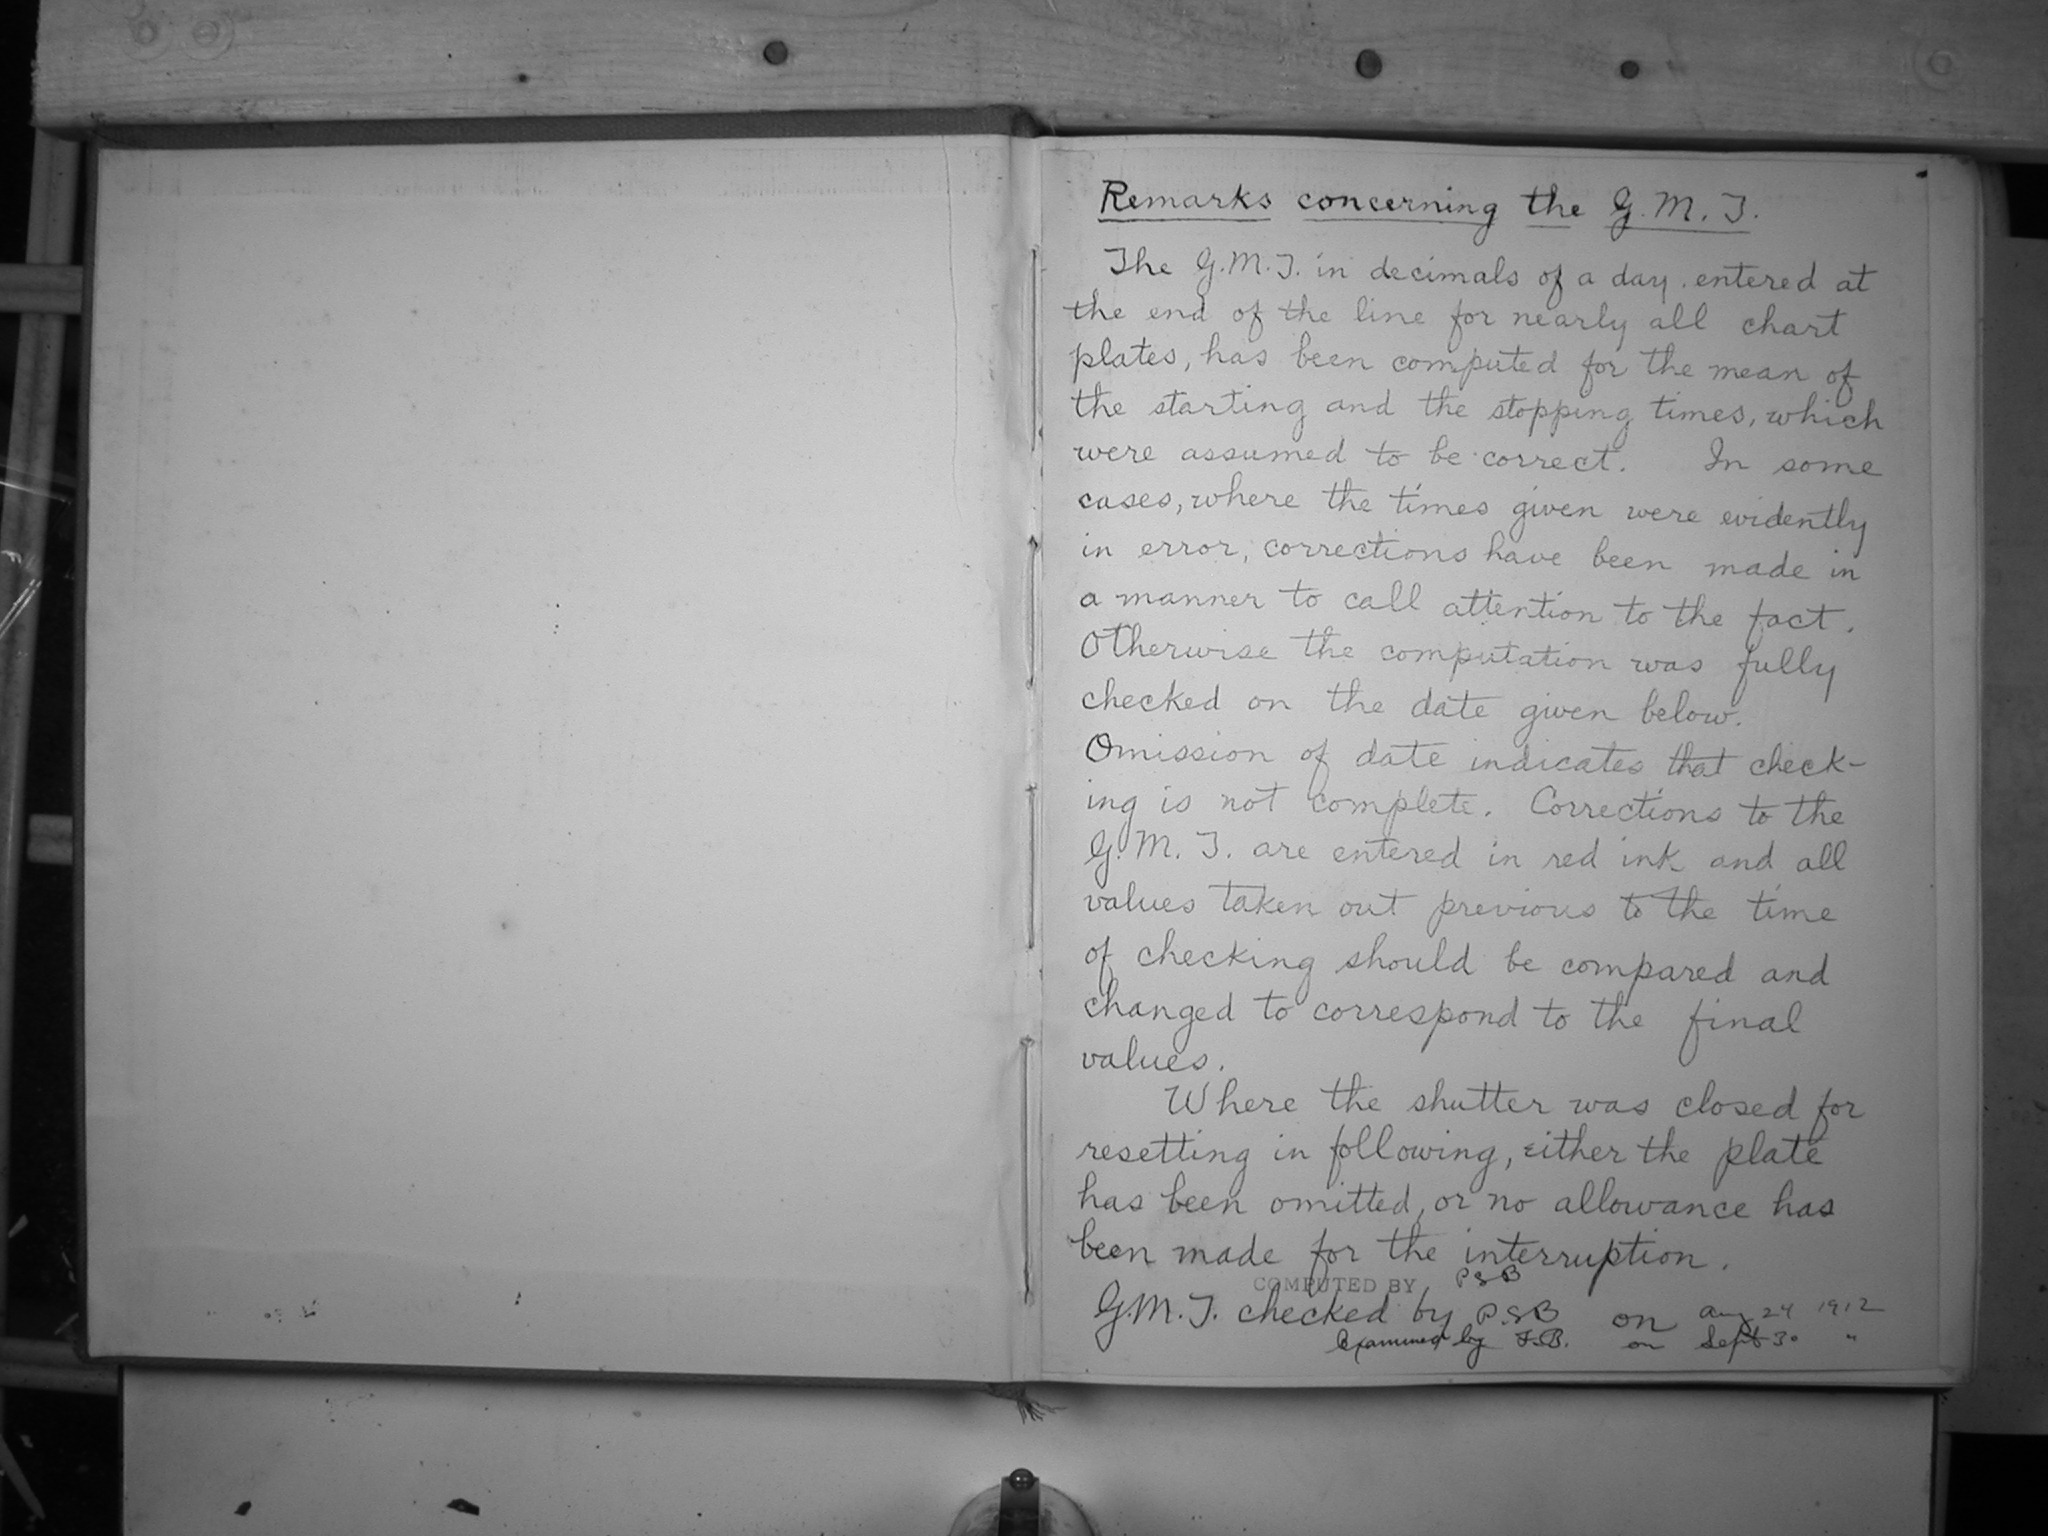 Remarks concerning the G.M.T.
The G.M.T. in decimals of a day entered at
the end of the line for nearly all chart
plates, has been computed for the mean of
the starting and the stopping times, which
were assumed to be correct. In some
cases, where the times given were evidently
in error, corrections have been made in
a manner to call attention to the fact.
Otherwise the computation was fully
checked on the date given below.
Omission of date indicates that check-
ing is not complete. Corrections to the
G.M.T. are entered in red ink and all
values taken out previous to the time
of checking should be compared and
changed to correspond to the final
values.
Where the shutter was closed for
resetting in following, either the plate
has been omitted, or no allowance has
been made for the interruption.
COMPUTED BY PSB
G.M.T. checked by P.S.B on Aug 24 1912
Examined by F.B. on Sept 30 "